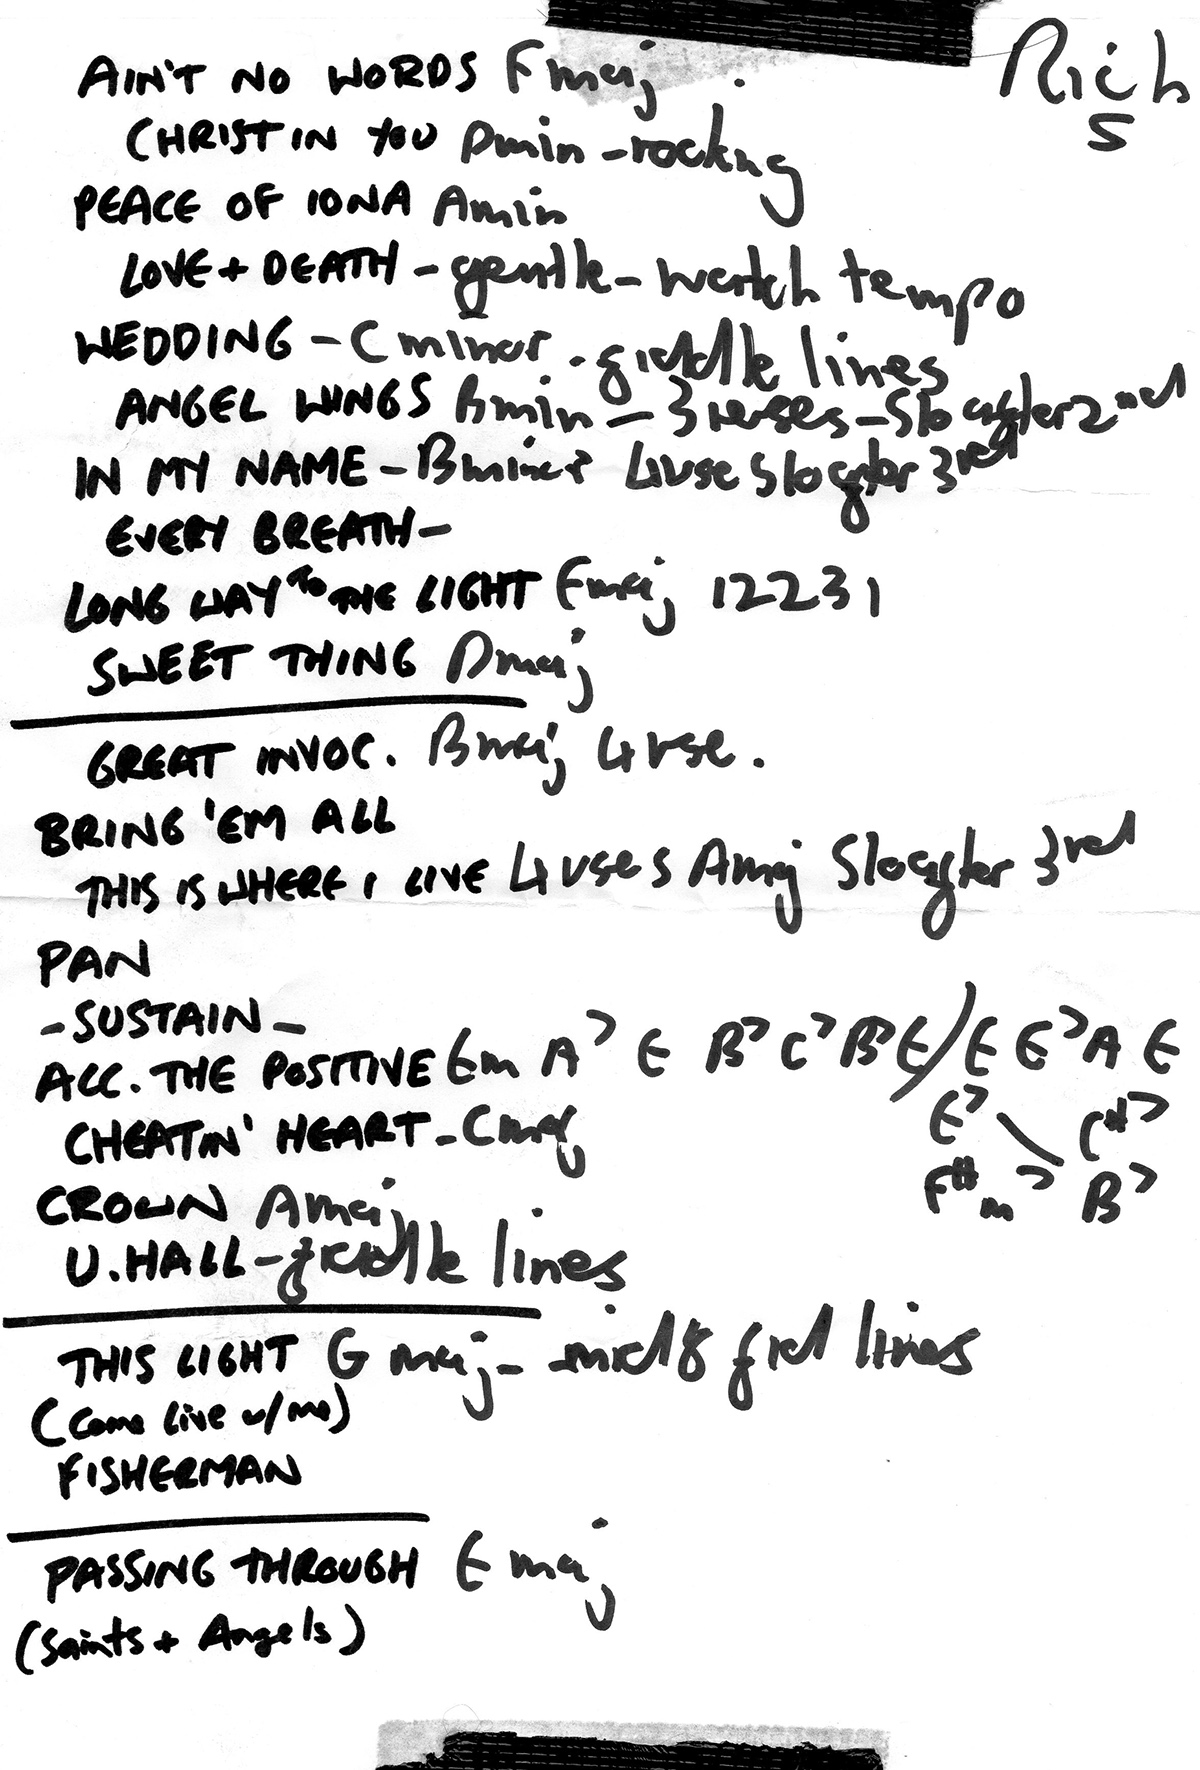 Rich
5
AIN'T NO WORDS F maj
CHRIST IN YOU Dmin - rocking
PEACE OF IONA Amin
LOVE + DEATH - gentle - watch tempo
WEDDING - C minor - fiddle lines
ANGEL WINGS Bmin - 3 verses - Slo after 2nd
IN MY NAME - B minor 4 vse Slo after 3rd
EVERY BREATH -
LONG WAY TO THE LIGHT Emaj 12231
SWEET THING Dmaj
GREAT INVOC. Bmaj 4 vse.
BRING 'EM ALL
THIS IS WHERE I LIVE 4 vses Amaj Slo after 3rd
PAN
- SUSTAIN -
ACC. THE POSITIVE Em A7 E B7 C7 B7 E / E E7 A E
E7 \ C#7
CHEATIN' HEART - Cmaj
F#m7 B7
CROWN Amaj
U. HALL - fiddle lines
THIS LIGHT G maj - mid 8 fid lines
(Come Live w/ me)
FISHERMAN
PASSING THROUGH E maj
(Saints + Angels)